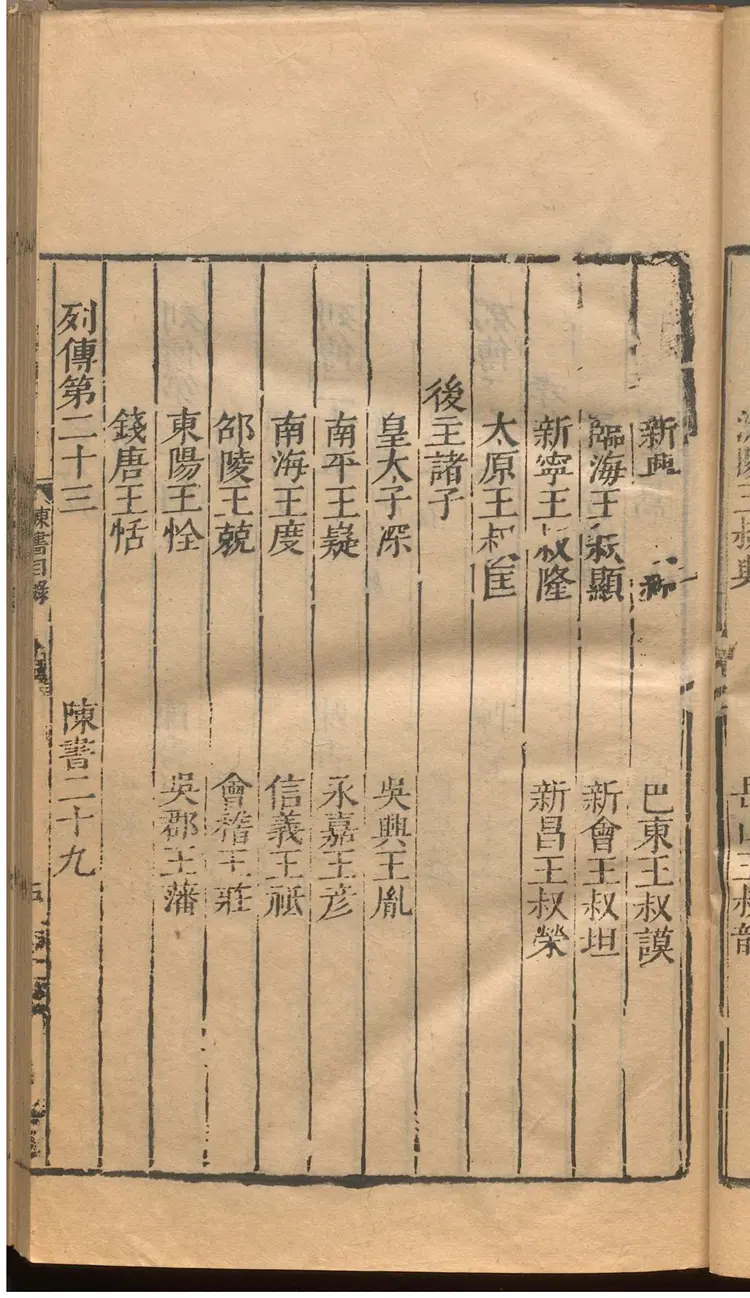 岳山王叔韶
新興
巴東王叔謨
臨海王叔顯
新會王叔坦
新寧王叔隆
新昌王叔榮
太原王叔匡
後主諸子
皇太子深
吳興王胤
南平王嶷
永嘉王彦
南海王度
信義王祗
邵陵王兢
會稽王莊
東陽王恮
吳郡王藩
錢唐王恬
列傳第二十三
陳書二十九
陳書目錄
五